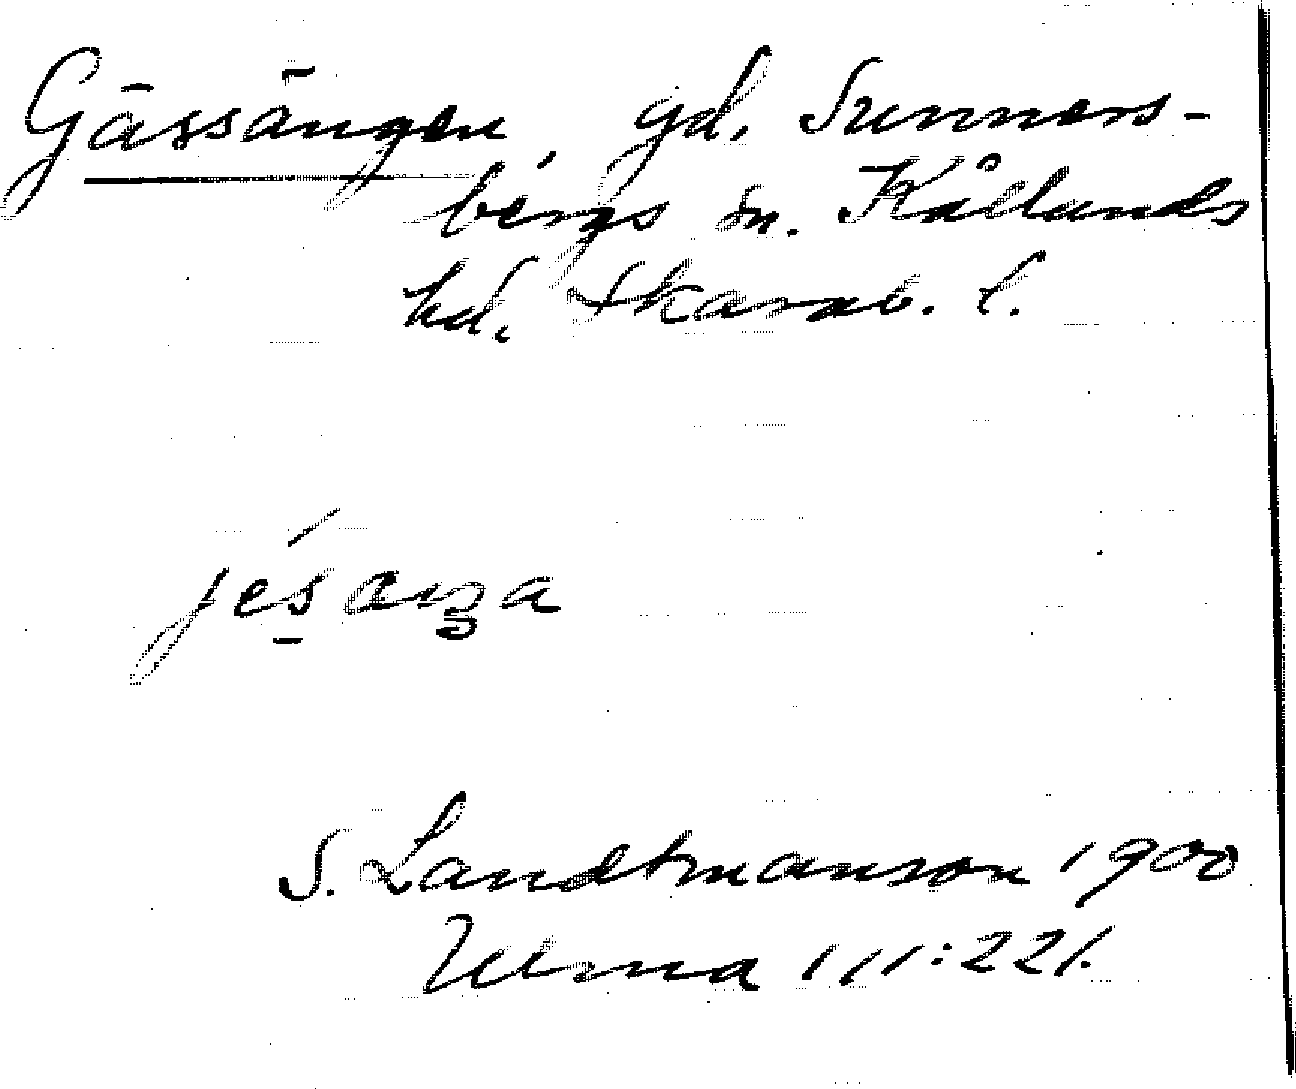 Gässängen, gd. Sunners-
bergs sn. Kållands
hd. Skarab. l.
S. Landtmanson 1900
Ulma 111:221.